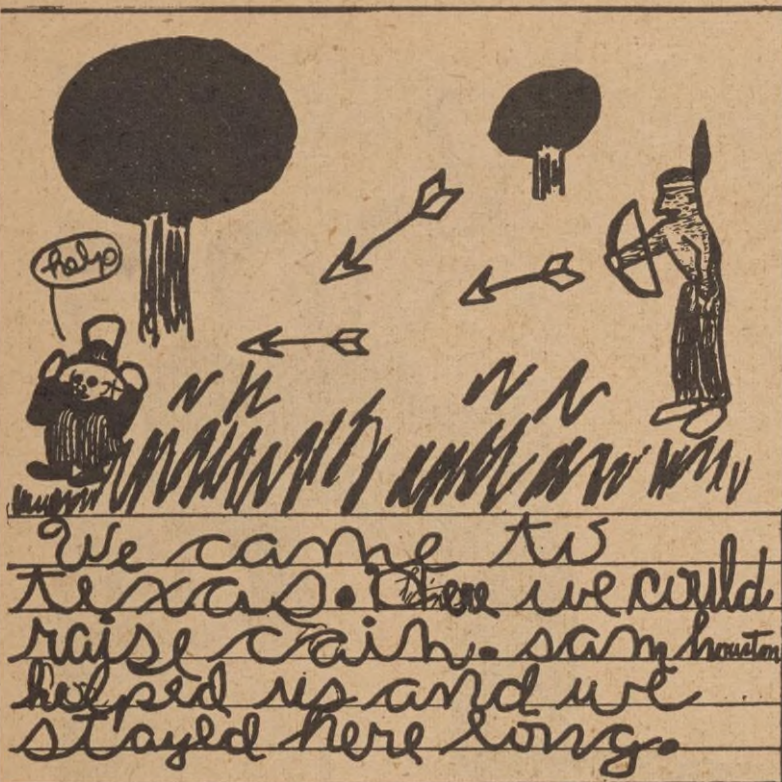 help
We came to
texas. Here we could
raise cain. sam houston
helped us and we
stayed here long.